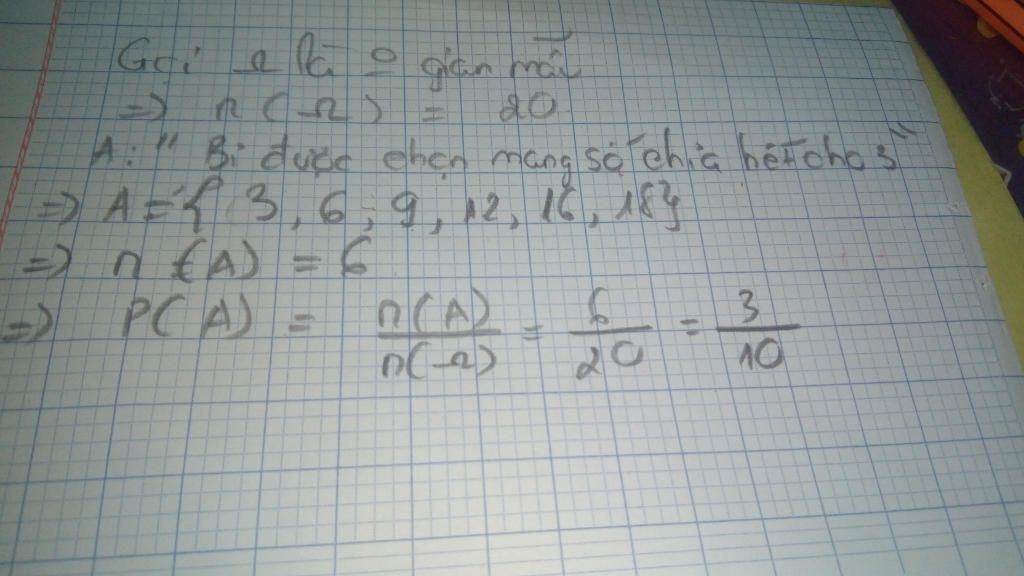 Gọi Ω là o gian mẫu
=> n(Ω) = 20
A: " Bi được chọn mang số chia hết cho 3"
=> A = { 3, 6, 9, 12, 16, 18}
=> n (A) = 6
=> P(A) = n(A)/n(Ω) = 6/20 = 3/10